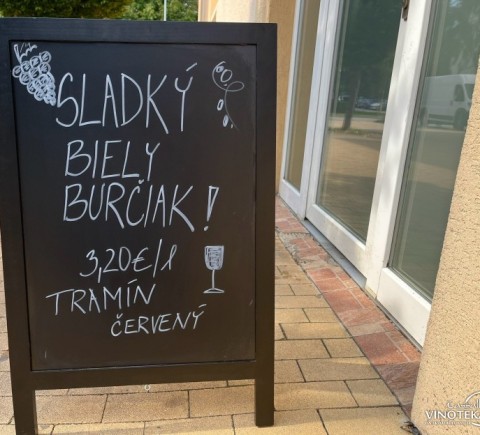 SLADKÝ
BIELY
BURČIAK!
3,20€/l
TRAMÍN
ČERVENÝ
VINOTEKA